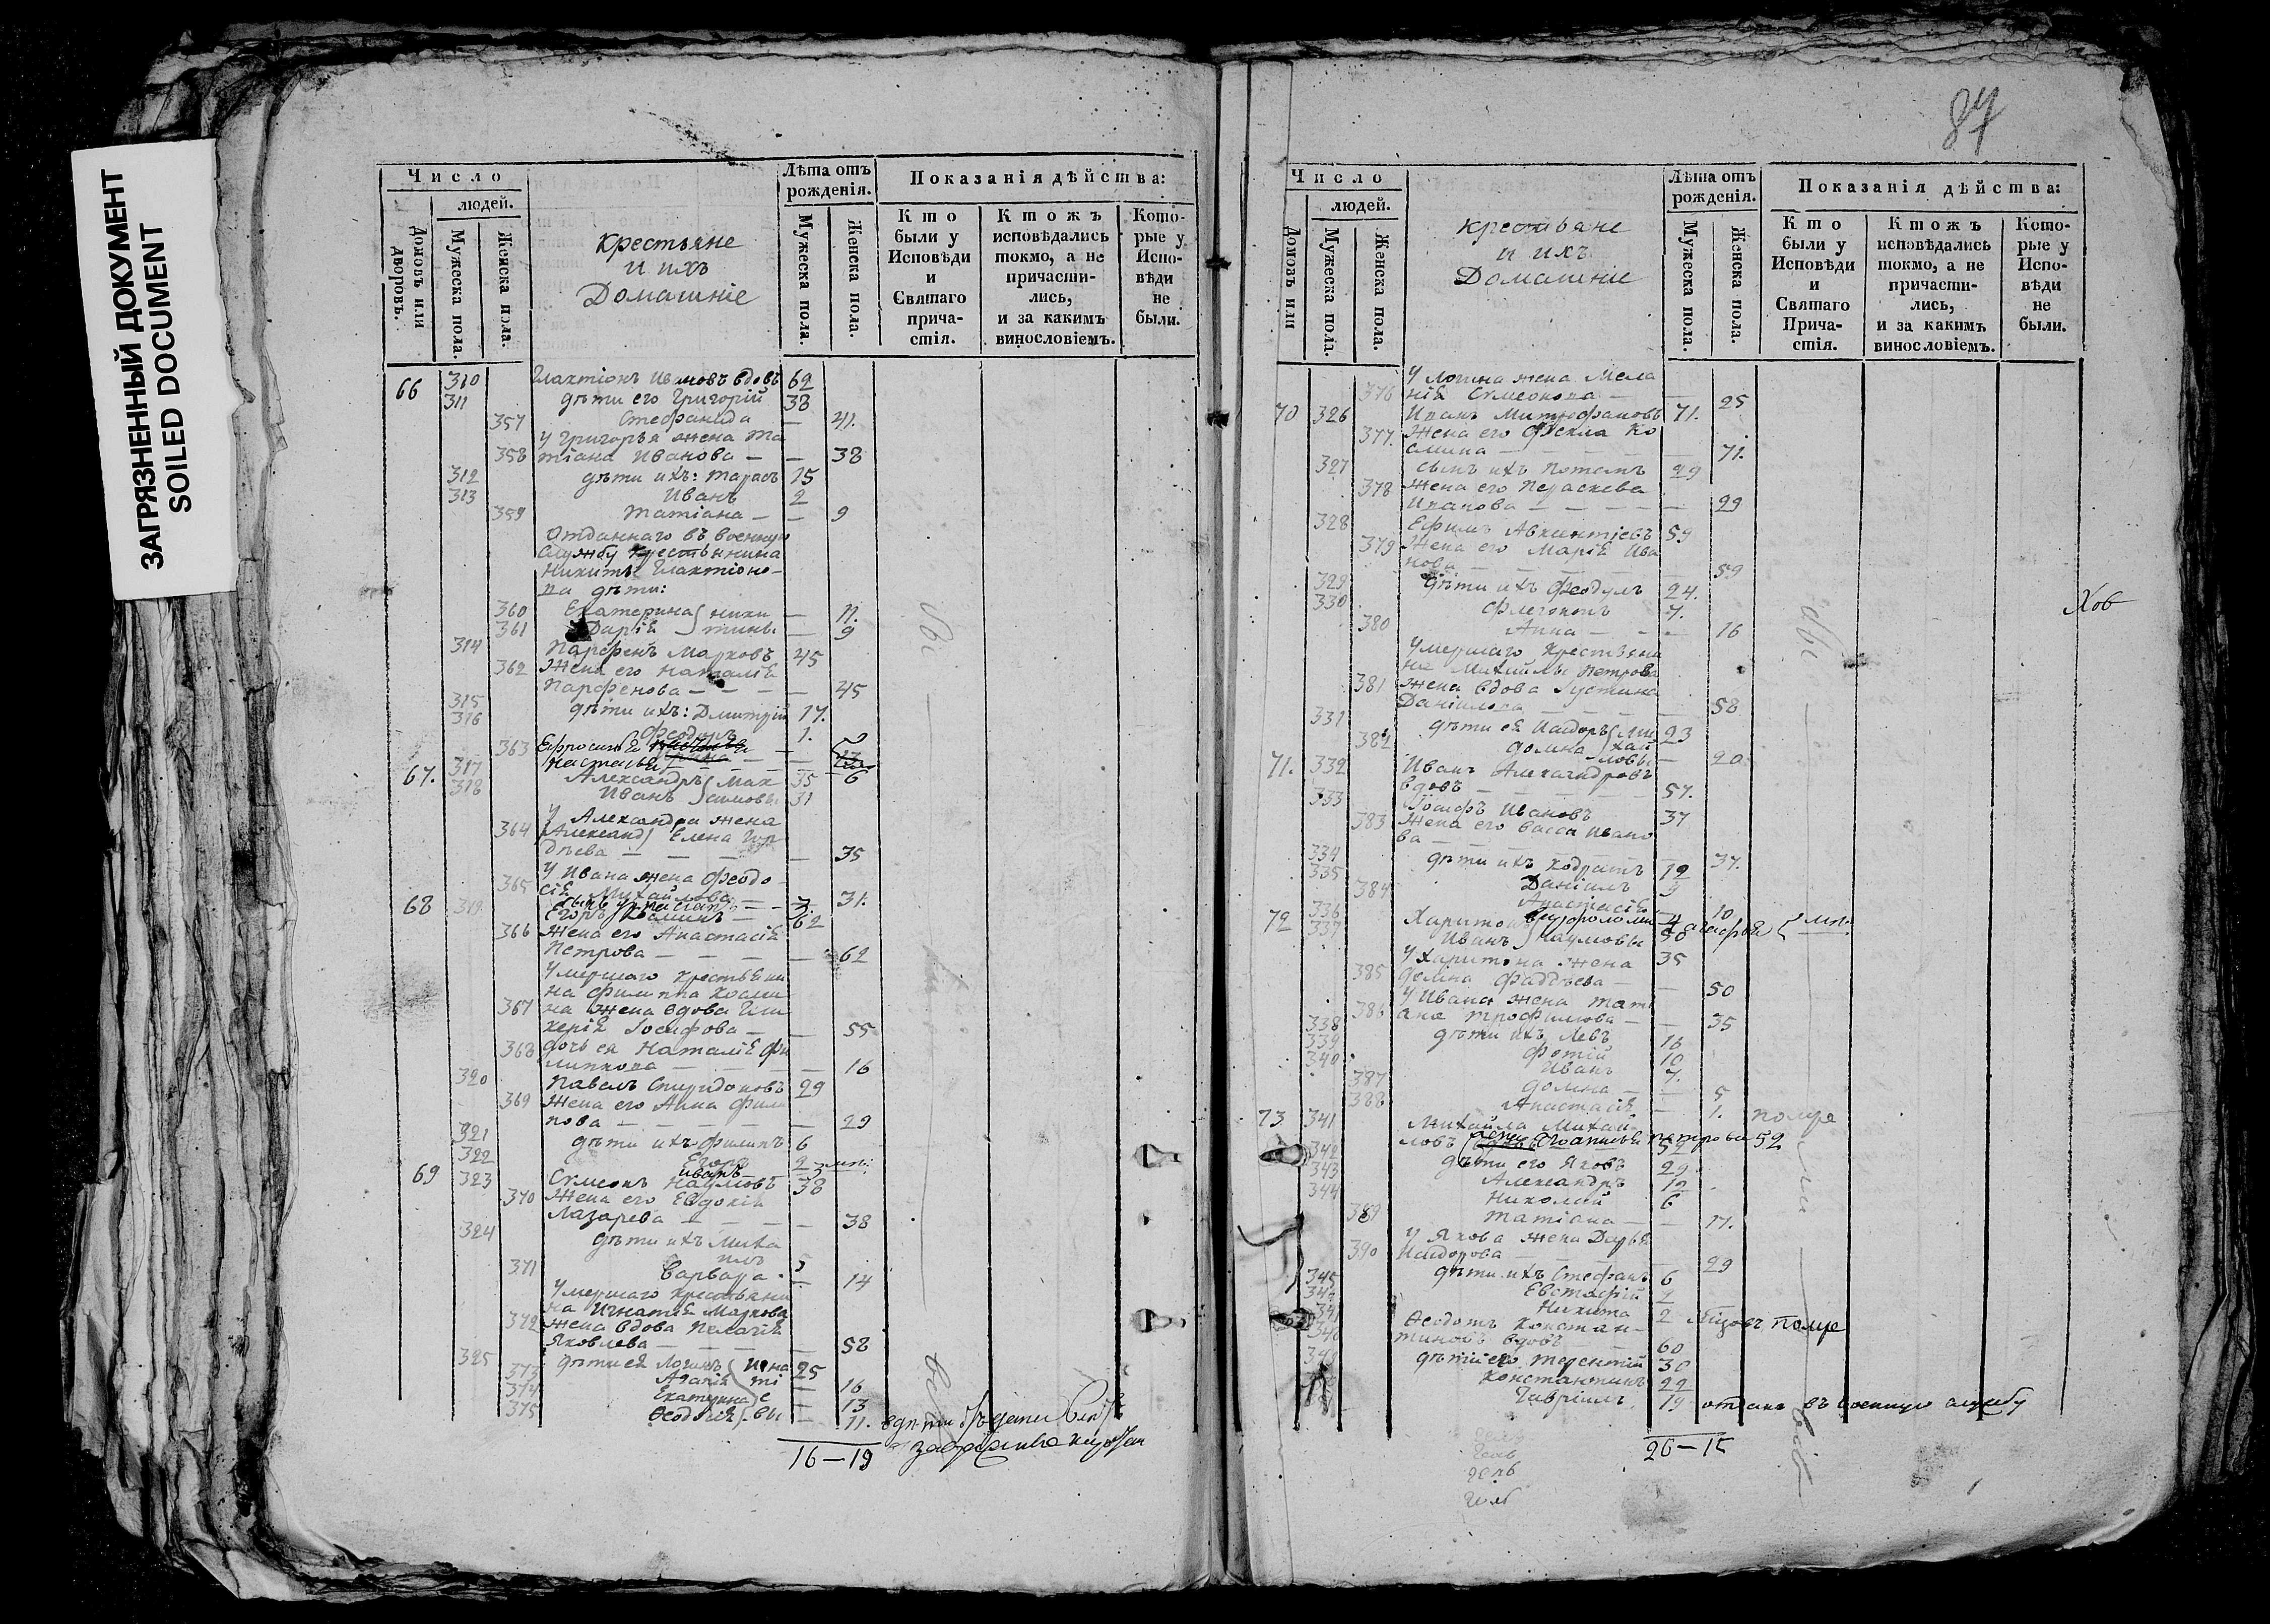 ЗАГРЯЗНЕННЫЙ ДОКУМЕНТ
SOILED DOCUMENT
Число
людей.
Домовъ или дворовъ.
Мужеска пола.
Женска пола.
крестьяне
и ихъ
Домашніе
Лѣта отъ рожденія.
Мужеска пола.
Женска пола.
Показанія дѣйства:
Кто были у Исповѣди и Святаго причастія.
Ктожъ исповѣдались токмо, а не причастились, и за какимъ винословіемъ.
Которые у Исповѣди не были.
66 310 Галактіонъ Ивановъ вдовъ 62
311 дѣти его Григорій 38
357 Стефанида — 41.
У Григорья жена Та
358 тіана Иванова — — 38
312 дѣти ихъ: Тарасъ 15
313 Иванъ 2
359 Татіана — — 9
Отданнаго въ военную
службу крестьянина
Никиты Галактіоно-
ва дѣти:
360 Екатерина ники — 11.
361 Дарія тины — 9
314 Парфенъ Марковъ 45
362 Жена его Наталія
Парфенова — — — — 45
315 дѣти ихъ: Дмитрій 17.
316 Феодулъ 1.
363 Ефросинія
Настасья 6
67. 317 Александръ Мак 35
318 Иванъ симовы 31
У Александра жена
364 Елена Гор
дѣева — — — — 35
У Ивана жена Феодо
365 сія Михайлова — — 31.
68 319 Егоръ Козминъ — 62
366 Жена его Анастасія
Петрова — — — — 62
Умершаго крестьяни
на Филиппа Козми
367 на жена вдова Гли
керія Іосифова — — 55
368 дочь ея Наталія Фи
липпова — — — — 16
320 Павелъ Спиридоновъ 29
369 Жена его Анна Фили
пова — — — — — 29
321 дѣти ихъ Филипъ 6
322 Егоръ 2
Иванъ 3 мѣ:
69 323 Сѵмеонъ Наумовъ 38
370 Жена его Евдокія
Лазарева — — — — 38
324 дѣти ихъ Миха
илъ 5
371 Варвара. — 14
Умершаго крестьяни
на Игнатія Маркова
372 жена вдова Пелагія
Яковлева — — — — 58
325 дѣти ея Логинъ Игна 25
373 Агапія ті — 16
374 Екатерина е — 13
375 Ѳеодосія вы — 11.
16—19
87
Число
людей.
Домовъ или
Мужеска пола.
Женска пола.
крестьяне
и ихъ
Домашніе
Лѣта отъ рожденія.
Мужеска пола.
Женска пола.
Показанія дѣйства:
Кто были у Исповѣди и Святаго Причастія.
Ктожъ исповѣдались токмо, а не причастились, и за какимъ винословіемъ.
Которые у Исповѣди не были.
У Логина жена Мела
376 нія Сѵмеонова — — 25
70 326 Иванъ Митрофановъ 71.
377. Жена его Фекла Ко
смина — — — — 71.
327 сынъ ихъ Потапъ 29
378 Жена его Параскева
Иванова — — — — — 29
328 Ефимъ Авксентіевъ 59
379 Жена его Марія Ива
нова — — — — 59
329 дѣти ихъ Феодулъ 24.
330 Флегонтъ 7.
380 Анна — — — 16
Умершаго крестьяни
на Михайлы Петрова
381 жена вдова Густина
Даніилова — — — — 58
331 дѣти ея Исидоръ Ми 23
382 Домна хай
ловы — 20
71. 332 Иванъ Александровъ
вдовъ — — — — 57.
333 Іосифъ Ивановъ 37
383 Жена его Васса Ивано
ва — — — — — 37.
334 дѣти ихъ Кодратъ 12
335 Даніилъ 9
384 Анастасія — 10
72 336 Харитонъ
337 Иванъ Наумовы
У Харитона жена 35
385 Домна Фаддѣева — — 50
У Ивана жена Тати
386 ана Трофимова — — 35
338 дѣти ихъ Левъ 16
339 Фотій 10
340 Иванъ 7.
387 Домна — — 5
388 Анастасія — 1. помре
73 341 Михайла Михай
ловъ Петрова 52
342 дѣти его Яковъ 29
343 Александръ 12
344 Николай 6
389 Татіана — — 17.
У Якова жена Дарья
390 Исидорова — — — 29
345 дѣти ихъ Стефанъ 6
Евстафій 2
Никита 2
Ѳеодотъ Констан- помре
тиновъ вдовъ 60
дѣти его Терентій 30
Константинъ 22
Гавріилъ 19 отданъ въ военную службу
26—15